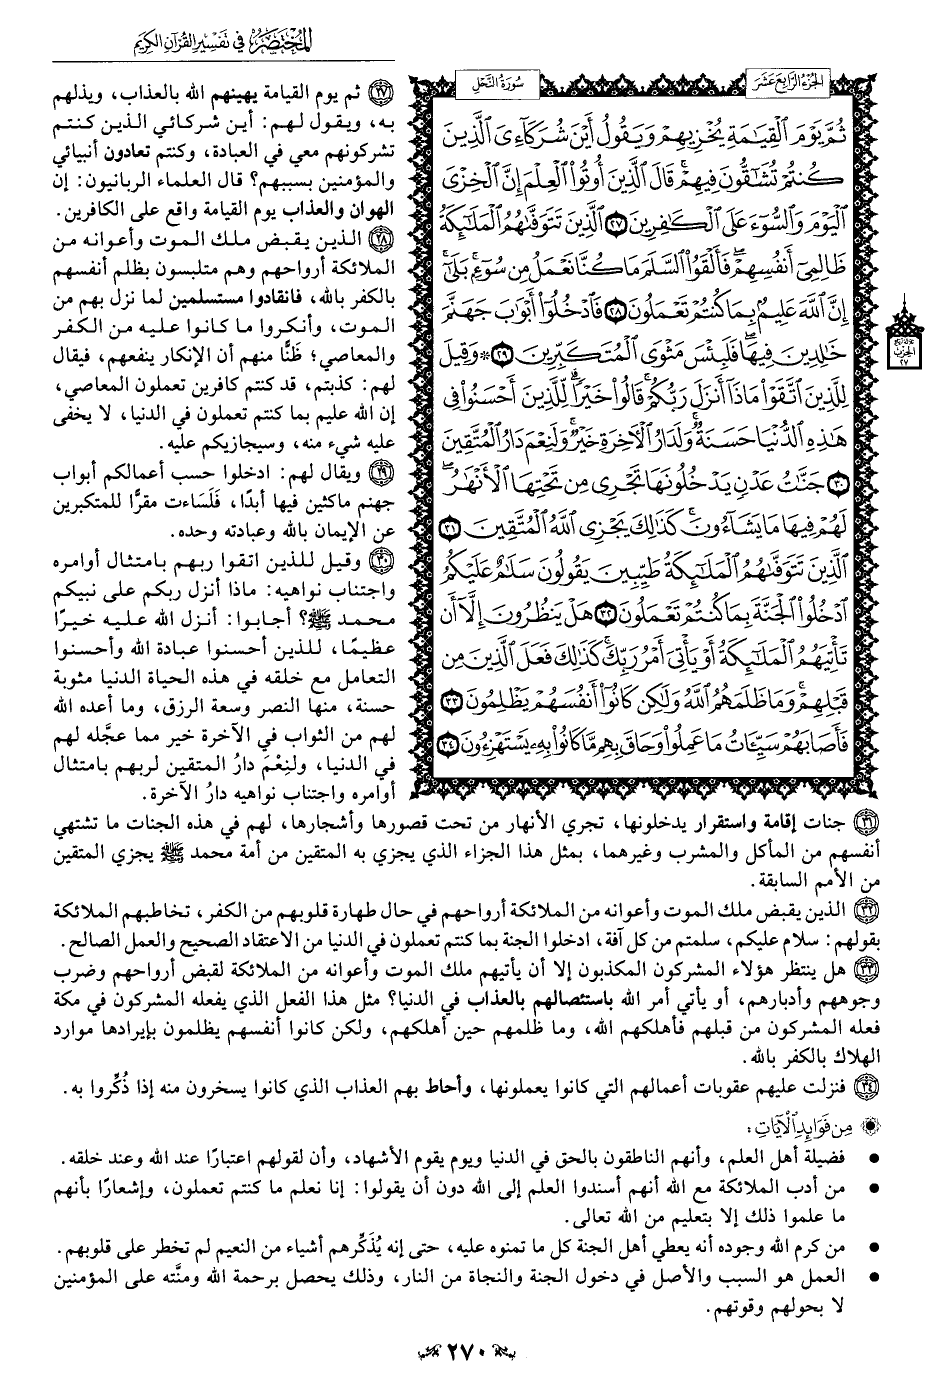 المختصر في تفسير القرآن الكريم
الجزء الرابع عشر
سورة النحل
ثُمَّ يَوْمَ ٱلْقِيَٰمَةِ يُخْزِيهِمْ وَيَقُولُ أَيْنَ شُرَكَآءِىَ ٱلَّذِينَ
كُنتُمْ تُشَٰٓقُّونَ فِيهِمْ ۚ قَالَ ٱلَّذِينَ أُوتُوا۟ ٱلْعِلْمَ إِنَّ ٱلْخِزْىَ
ٱلْيَوْمَ وَٱلسُّوٓءَ عَلَى ٱلْكَٰفِرِينَ ٢٧ ٱلَّذِينَ تَتَوَفَّىٰهُمُ ٱلْمَلَٰٓئِكَةُ
ظَالِمِىٓ أَنفُسِهِمْ ۖ فَأَلْقَوُا۟ ٱلسَّلَمَ مَا كُنَّا نَعْمَلُ مِن سُوٓءٍۭ ۚ بَلَىٰٓ ۚ
إِنَّ ٱللَّهَ عَلِيمٌۢ بِمَا كُنتُمْ تَعْمَلُونَ ٢٨ فَٱدْخُلُوٓا۟ أَبْوَٰبَ جَهَنَّمَ
خَٰلِدِينَ فِيهَا ۖ فَلَبِئْسَ مَثْوَى ٱلْمُتَكَبِّرِينَ ٢٩ ۞ وَقِيلَ
لِلَّذِينَ ٱتَّقَوْا۟ مَاذَآ أَنزَلَ رَبُّكُمْ ۚ قَالُوا۟ خَيْرًا ۗ لِّلَّذِينَ أَحْسَنُوا۟ فِى
هَٰذِهِ ٱلدُّنْيَا حَسَنَةٌ ۚ وَلَدَارُ ٱلْءَاخِرَةِ خَيْرٌ ۚ وَلَنِعْمَ دَارُ ٱلْمُتَّقِينَ
٣٠ جَنَّٰتُ عَدْنٍ يَدْخُلُونَهَا تَجْرِى مِن تَحْتِهَا ٱلْأَنْهَٰرُ ۖ
لَهُمْ فِيهَا مَا يَشَآءُونَ ۚ كَذَٰلِكَ يَجْزِى ٱللَّهُ ٱلْمُتَّقِينَ ٣١
ٱلَّذِينَ تَتَوَفَّىٰهُمُ ٱلْمَلَٰٓئِكَةُ طَيِّبِينَ ۙ يَقُولُونَ سَلَٰمٌ عَلَيْكُمُ
ٱدْخُلُوا۟ ٱلْجَنَّةَ بِمَا كُنتُمْ تَعْمَلُونَ ٣٢ هَلْ يَنظُرُونَ إِلَّآ أَن
تَأْتِيَهُمُ ٱلْمَلَٰٓئِكَةُ أَوْ يَأْتِىَ أَمْرُ رَبِّكَ ۚ كَذَٰلِكَ فَعَلَ ٱلَّذِينَ مِن
قَبْلِهِمْ ۚ وَمَا ظَلَمَهُمُ ٱللَّهُ وَلَٰكِن كَانُوٓا۟ أَنفُسَهُمْ يَظْلِمُونَ ٣٣
فَأَصَابَهُمْ سَيِّـَٔاتُ مَا عَمِلُوا۟ وَحَاقَ بِهِم مَّا كَانُوا۟ بِهِۦ يَسْتَهْزِءُونَ ٣٤
الحزب
٢٧
٢٧ ثم يوم القيامة يهينهم الله بالعذاب، ويذلهم
به، ويقول لهم: أين شركائي الذين كنتم
تشركونهم معي في العبادة، وكنتم تعادون أنبيائي
والمؤمنين بسببهم؟ قال العلماء الربانيون: إن
الهوان والعذاب يوم القيامة واقع على الكافرين.
٢٨ الذين يقبض ملك الموت وأعوانه من
الملائكة أرواحهم وهم متلبسون بظلم أنفسهم
بالكفر بالله، فانقادوا مستسلمين لما نزل بهم من
الموت، وأنكروا ما كانوا عليه من الكفر
والمعاصي؛ ظنًّا منهم أن الإنكار ينفعهم، فيقال
لهم: كذبتم، قد كنتم كافرين تعملون المعاصي،
إن الله عليم بما كنتم تعملون في الدنيا، لا يخفى
عليه شيء منه، وسيجازيكم عليه.
٢٩ ويقال لهم: ادخلوا حسب أعمالكم أبواب
جهنم ماكثين فيها أبدًا، فَلَساءت مقرًّا للمتكبرين
عن الإيمان بالله وعبادته وحده.
٣٠ وقيل للذين اتقوا ربهم بامتثال أوامره
واجتناب نواهيه: ماذا أنزل ربكم على نبيكم
محمد ﷺ؟ أجابوا: أنزل الله عليه خيرًا
عظيمًا، للذين أحسنوا عبادة الله وأحسنوا
التعامل مع خلقه في هذه الحياة الدنيا مثوبة
حسنة، منها النصر وسعة الرزق، وما أعده الله
لهم من الثواب في الآخرة خير مما عجَّله لهم
في الدنيا، ولنِعْمَ دارُ المتقين لربهم بامتثال
أوامره واجتناب نواهيه دارُ الآخرة.
٣١ جنات إقامة واستقرار يدخلونها، تجري الأنهار من تحت قصورها وأشجارها، لهم في هذه الجنات ما تشتهي
أنفسهم من المأكل والمشرب وغيرهما، بمثل هذا الجزاء الذي يجزي به المتقين من أمة محمد ﷺ يجزي المتقين
من الأمم السابقة.
٣٢ الذين يقبض ملك الموت وأعوانه من الملائكة أرواحهم في حال طهارة قلوبهم من الكفر، تخاطبهم الملائكة
بقولهم: سلام عليكم، سلمتم من كل آفة، ادخلوا الجنة بما كنتم تعملون في الدنيا من الاعتقاد الصحيح والعمل الصالح.
٣٣ هل ينتظر هؤلاء المشركون المكذبون إلا أن يأتيهم ملك الموت وأعوانه من الملائكة لقبض أرواحهم وضرب
وجوههم وأدبارهم، أو يأتي أمر الله باستئصالهم بالعذاب في الدنيا؟ مثل هذا الفعل الذي يفعله المشركون في مكة
فعله المشركون من قبلهم فأهلكهم الله، وما ظلمهم حين أهلكهم، ولكن كانوا أنفسهم يظلمون بإيرادها موارد
الهلاك بالكفر بالله.
٣٤ فنزلت عليهم عقوبات أعمالهم التي كانوا يعملونها، وأحاط بهم العذاب الذي كانوا يسخرون منه إذا ذُكِّروا به.
من فوائد الآيات:
• فضيلة أهل العلم، وأنهم الناطقون بالحق في الدنيا ويوم يقوم الأشهاد، وأن لقولهم اعتبارًا عند الله وعند خلقه.
• من أدب الملائكة مع الله أنهم أسندوا العلم إلى الله دون أن يقولوا: إنا نعلم ما كنتم تعملون، وإشعارًا بأنهم
ما علموا ذلك إلا بتعليم من الله تعالى.
• من كرم الله وجوده أنه يعطي أهل الجنة كل ما تمنوه عليه، حتى إنه يُذَكِّرهم أشياء من النعيم لم تخطر على قلوبهم.
• العمل هو السبب والأصل في دخول الجنة والنجاة من النار، وذلك يحصل برحمة الله ومنَّته على المؤمنين
لا بحولهم وقوتهم.
٢٧٠